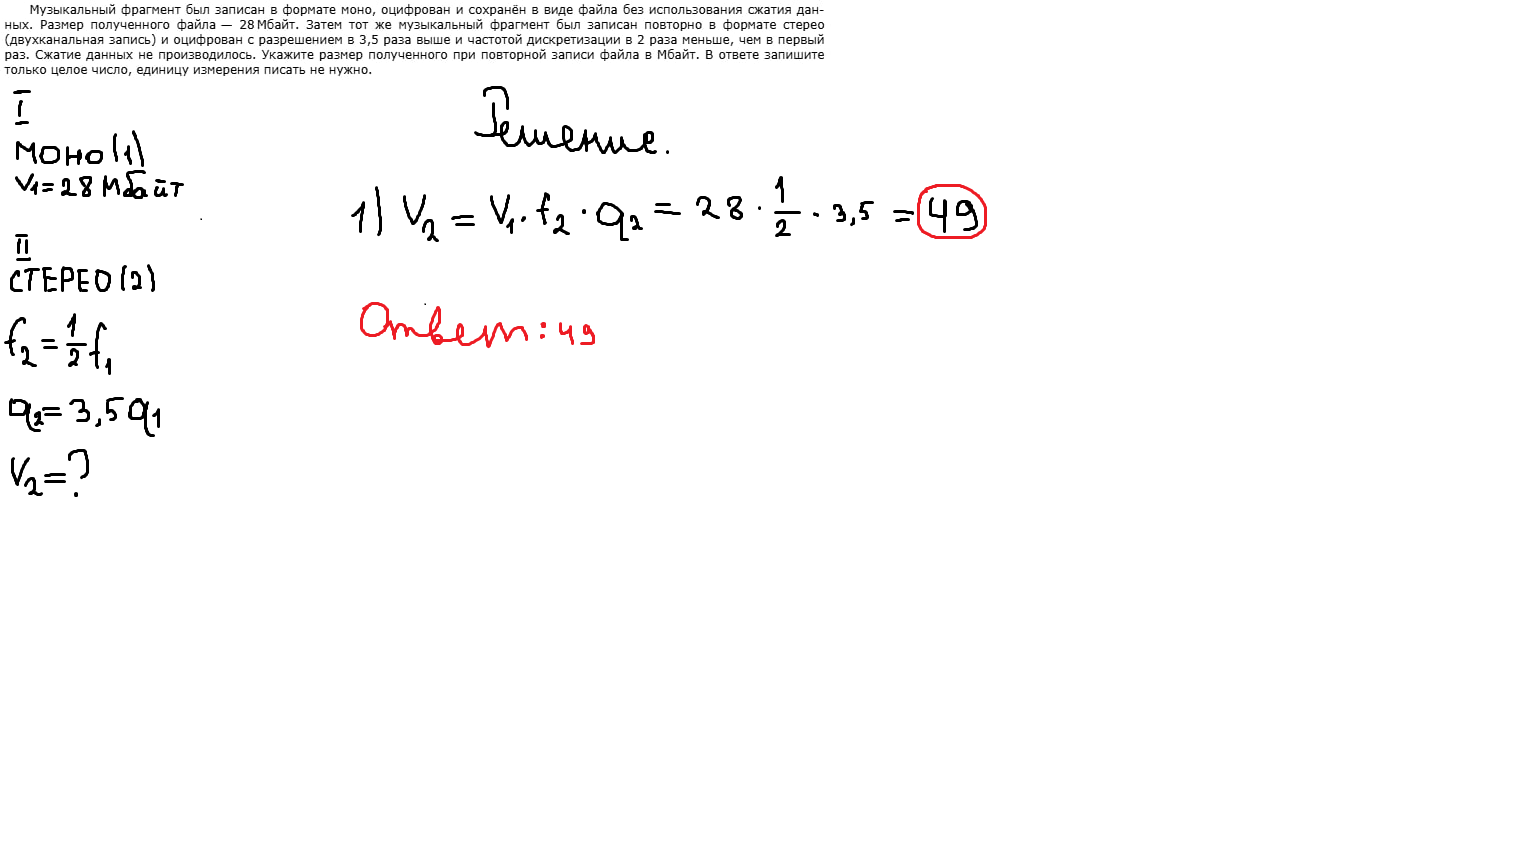 Музыкальный фрагмент был записан в формате моно, оцифрован и сохранён в виде файла без использования сжатия дан-
ных. Размер полученного файла — 28 Мбайт. Затем тот же музыкальный фрагмент был записан повторно в формате стерео
(двухканальная запись) и оцифрован с разрешением в 3,5 раза выше и частотой дискретизации в 2 раза меньше, чем в первый
раз. Сжатие данных не производилось. Укажите размер полученного при повторной записи файла в Мбайт. В ответе запишите
только целое число, единицу измерения писать не нужно.
I
МОНО(1)
V1=28 Мбайт
II
СТЕРЕО(2)
f2=1/2 f1
q2=3,5 q1
V2=?
Решение.
1) V2 = V1 · f2 · q2 = 28 · 1/2 · 3,5 = 49
Ответ: 49